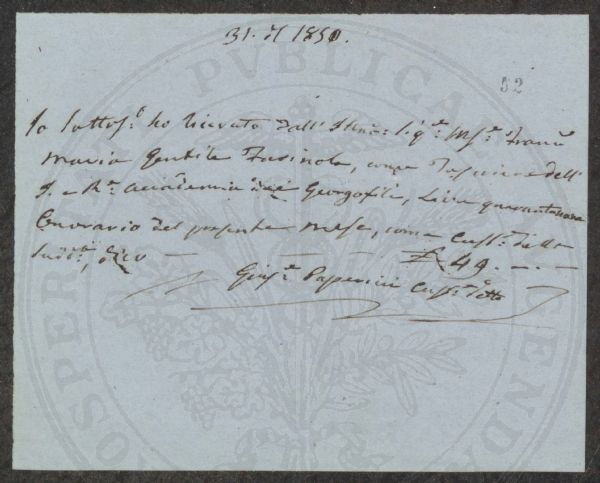 31. 1850.
52
Io Sottos.o ho ricevuto dall' Illmo: Sig.e M.se
Maria Gentile Farinola, come Tesoriere dell'
I. e R.e Accademia dei Georgofili, Lire quarantanove
Onorario del presente mese, come Cuss.e della
Sud.a, dico — — — £ 49. — . —
Gius.e Paperini Cuss.e
PROSPERITATI PVBLICAE AVGENDAE